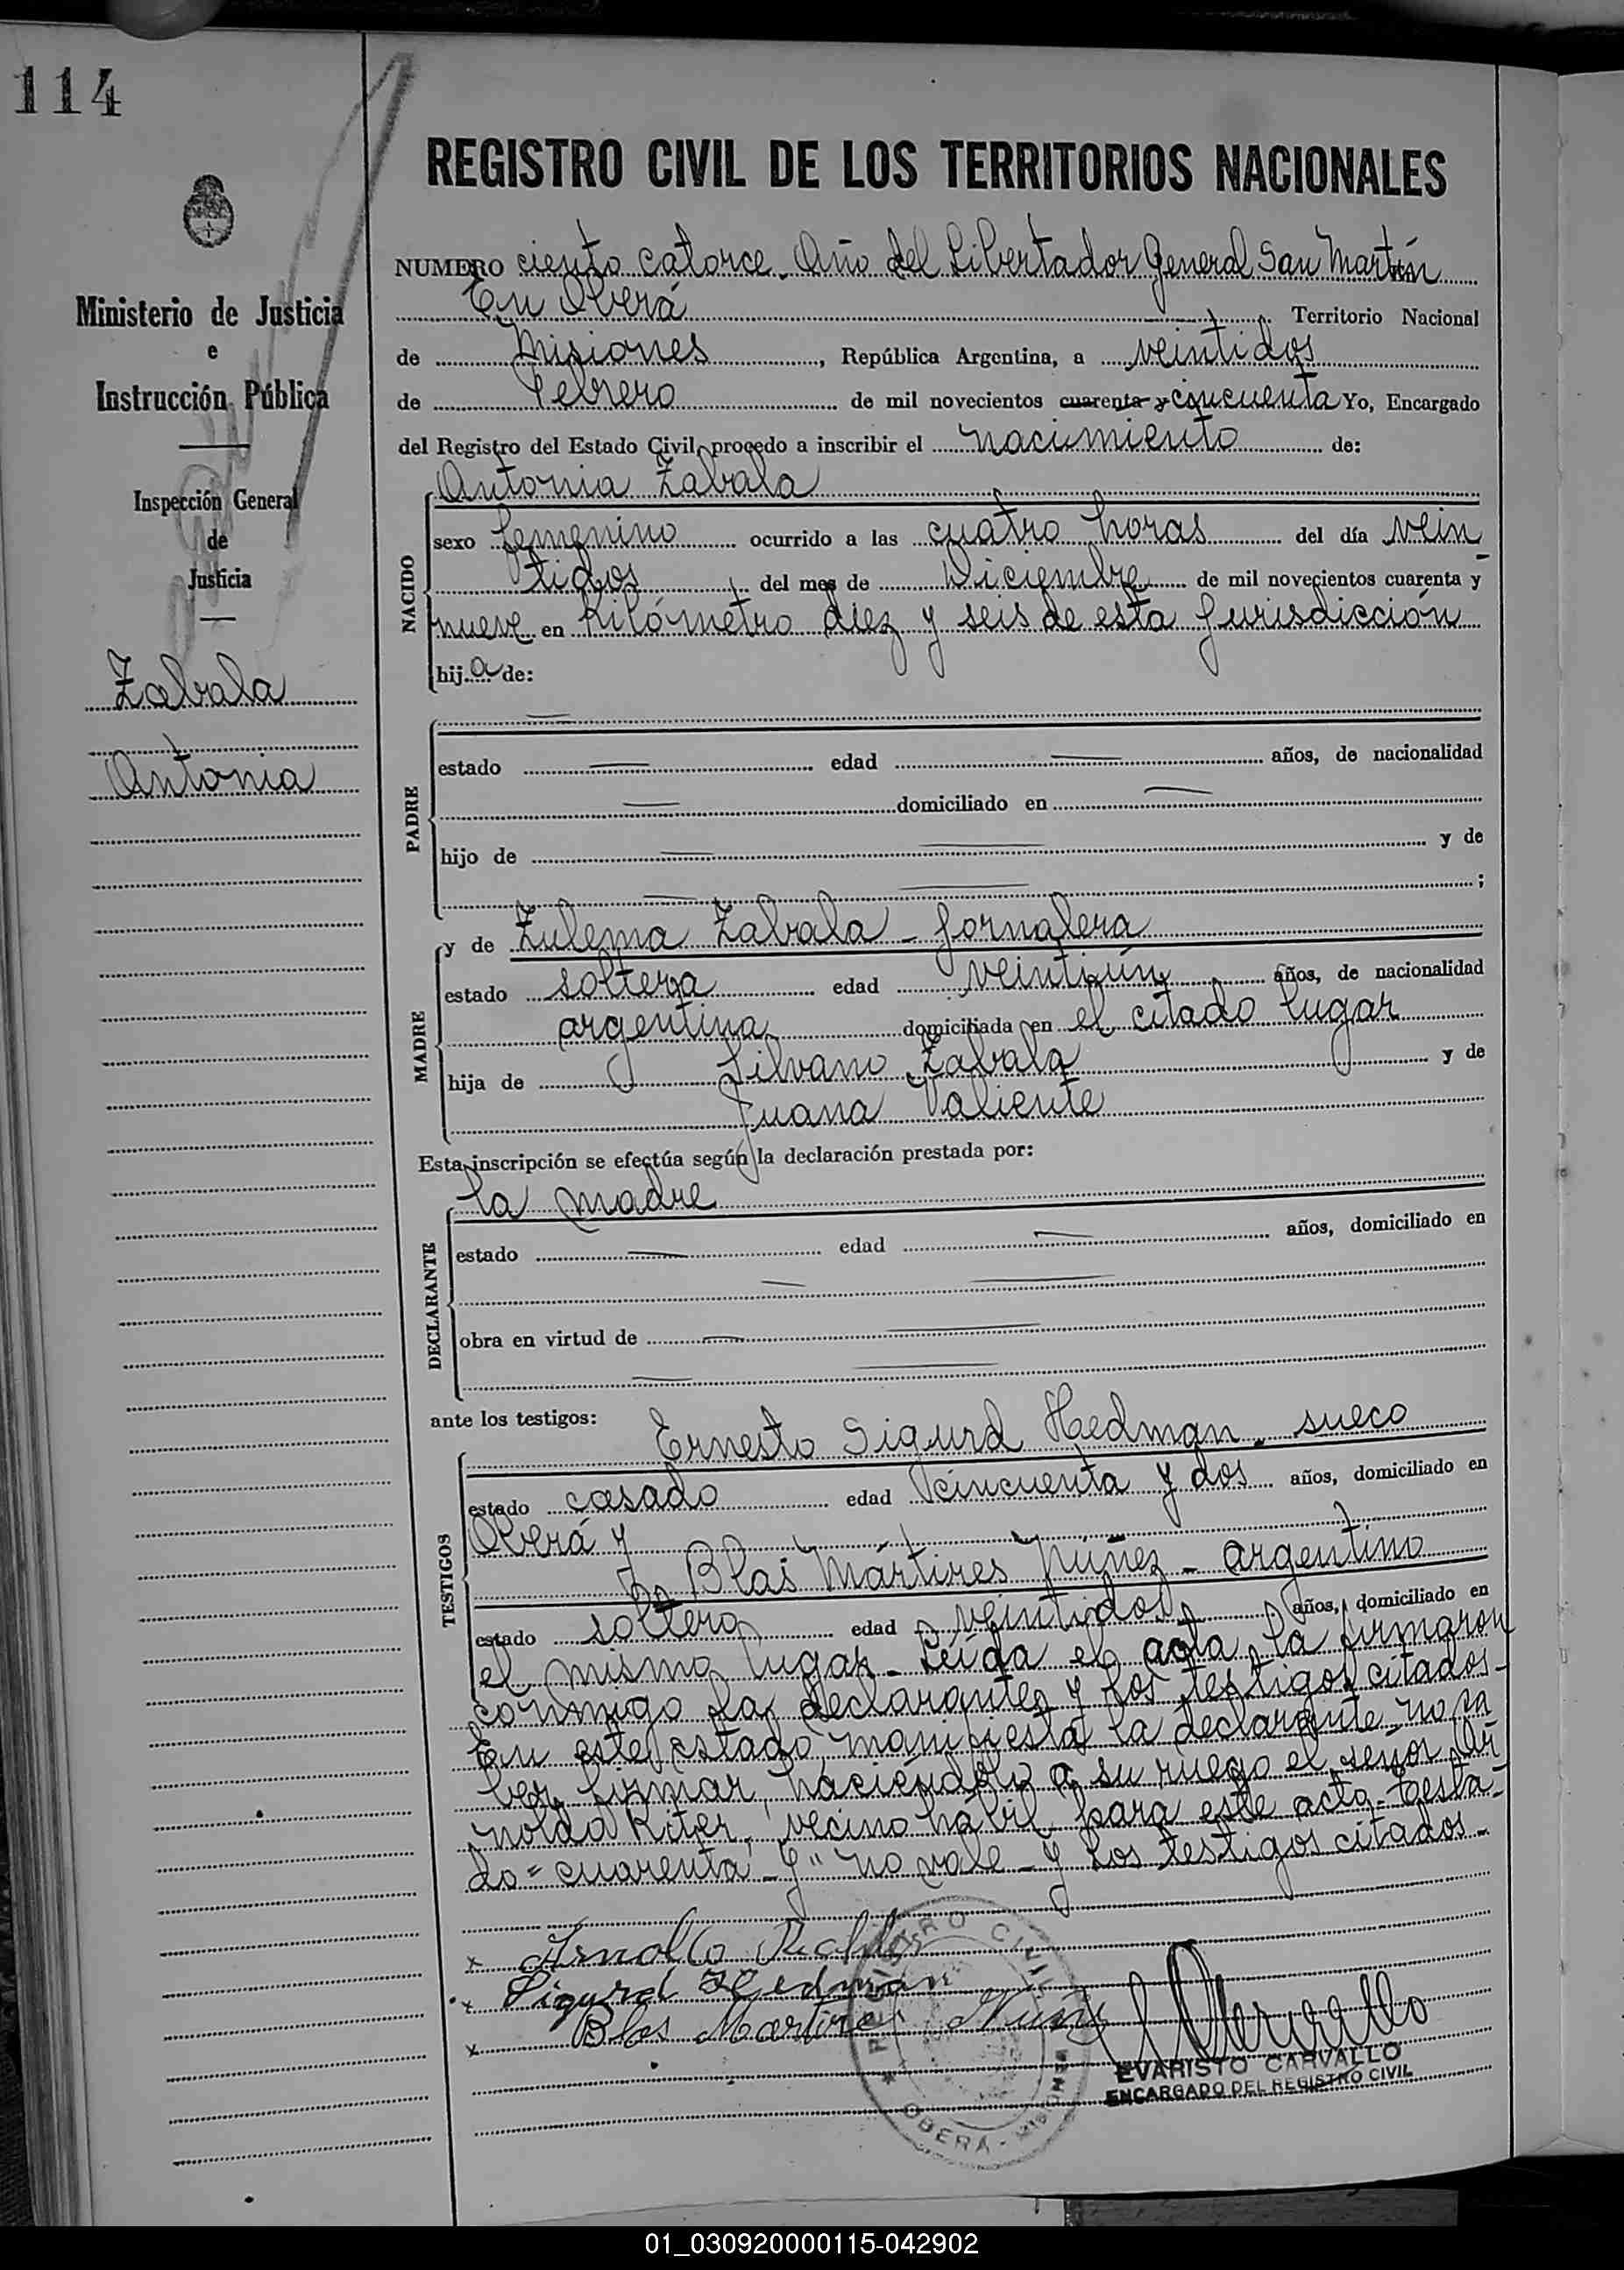 114
REGISTRO CIVIL DE LOS TERRITORIOS NACIONALES
NUMERO ciento catorce. Año del Libertador General San Martín
En Oberá Territorio Nacional
de Misiones, República Argentina, a veintidos
de Febrero de mil novecientos cuarenta y cincuenta Yo, Encargado
del Registro del Estado Civil, procedo a inscribir el nacimiento de:
Antonia Zabala
NACIDO
sexo femenino ocurrido a las cuatro horas del día vein
tidos del mes de Diciembre de mil novecientos cuarenta y
nueve en Kilómetro diez y seis de esta jurisdicción
hija de:
Ministerio de Justicia
e
Instrucción Pública
Inspección General
de
Justicia
Zabala
Antonia
PADRE
estado edad años, de nacionalidad
domiciliado en
hijo de y de
;
MADRE
y de Zulema Zabala - jornalera
estado soltera edad veintiún años, de nacionalidad
argentina domiciliada en el citado lugar
hija de Silvano Zabala y de
Juana Valiente
Esta inscripción se efectúa según la declaración prestada por:
la madre
DECLARANTE
estado edad años, domiciliado en
obra en virtud de
ante los testigos:
TESTIGOS
Ernesto Sigurd Hedman. sueco
estado casado edad cincuenta y dos años, domiciliado en
Oberá y
Blas Mártires Núñez - argentino
estado soltero edad veintidos años, domiciliado en
el mismo lugar - Leída el acta, la firmaron
conmigo la declarante y los testigos citados -
En este estado, manifiesta la declarante no sa
ber firmar, haciéndolo a su ruego el señor Ar
noldo Riter, vecino hábil para este acto. Testa-
do "cuarenta - y" no vale - y los testigos citados -
x Arnoldo
x Sigurd Hedman
x Blas Martires Nuñez
REGISTRO CIVIL
OBERA - MISIONES
EVARISTO CARVALLO
ENCARGADO DEL REGISTRO CIVIL
01_030920000115-042902